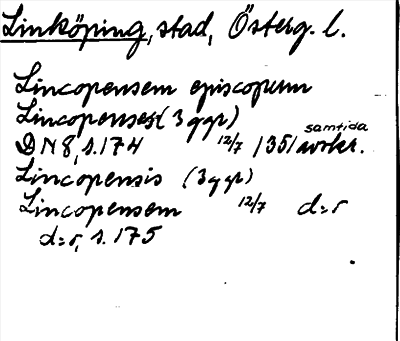 Linköping, stad, Österg. l.
Lincopensem episcopum
Lincopenses (3 ggr)
samtida
DN 8, s. 174 12/7 1351 avskr.
Lincopensis (3 ggr)
Lincopensem 12/7 d:r
d:r, s. 175